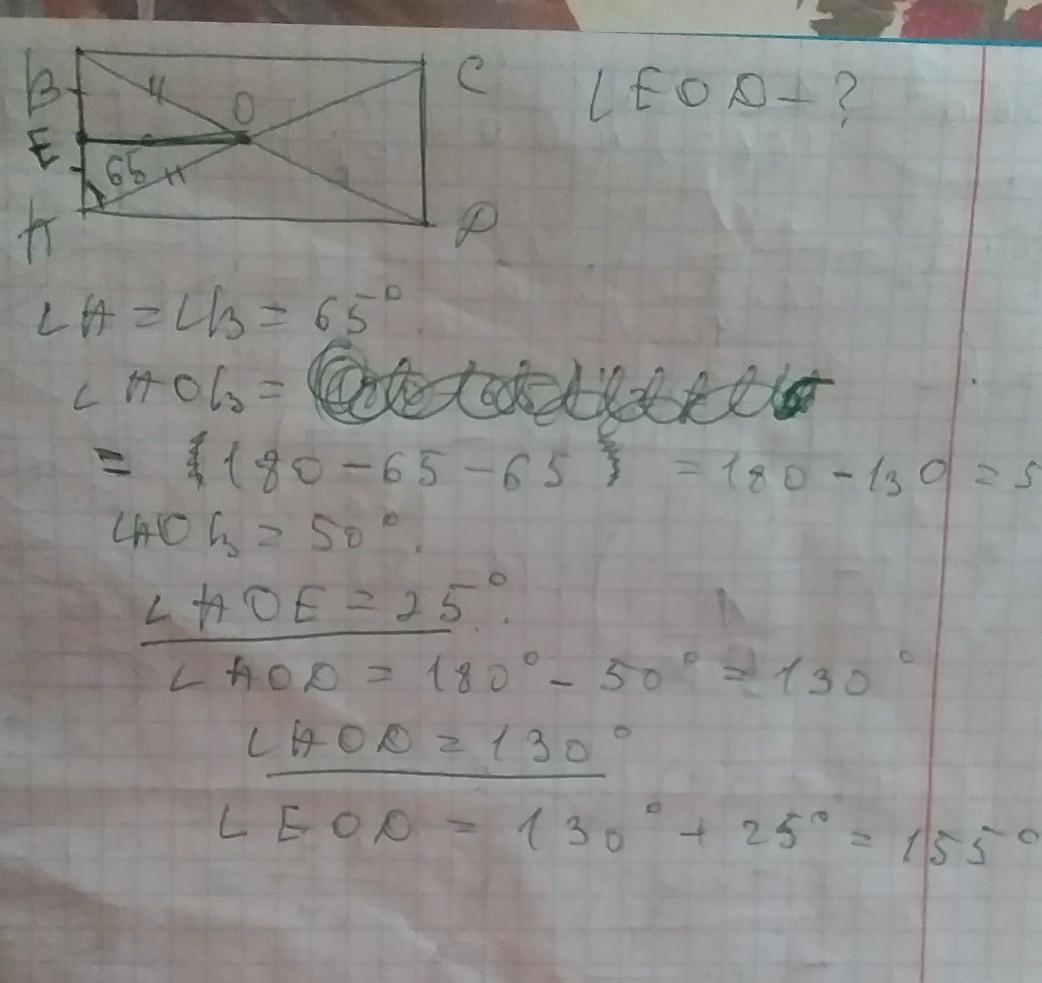 B
C
∠EOD - ?
O
E
65
A
D
∠A = ∠B = 65°.
∠AOB =
= 180 - 65 - 65 = 180 - 130 = 5
∠AOB = 50°.
∠AOE = 25°.
∠AOD = 180° - 50° = 130°
∠AOD = 130°
∠EOD = 130° + 25° = 155°